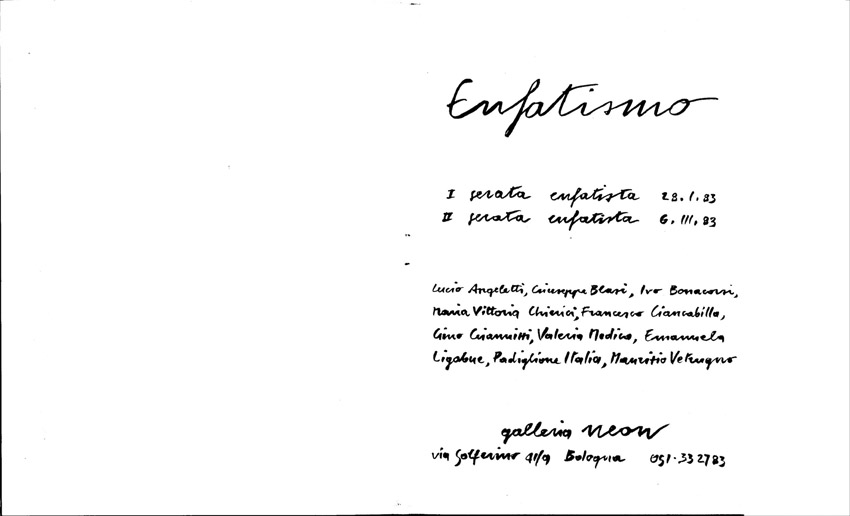 Enfatismo
I serata enfatista 28.1.83
II serata enfatista 6.III.83
Lucio Angeletti, Giuseppe Blasi, Ivo Bonacorsi,
Maria Vittoria Chierici, Francesco Ciancabilla,
Gino Giannuizzi, Valeria Medica, Emanuela
Ligabue, Padiglione Italia, Maurizio Vetrugno
galleria neon
via Solferino 41/a Bologna 051-332783